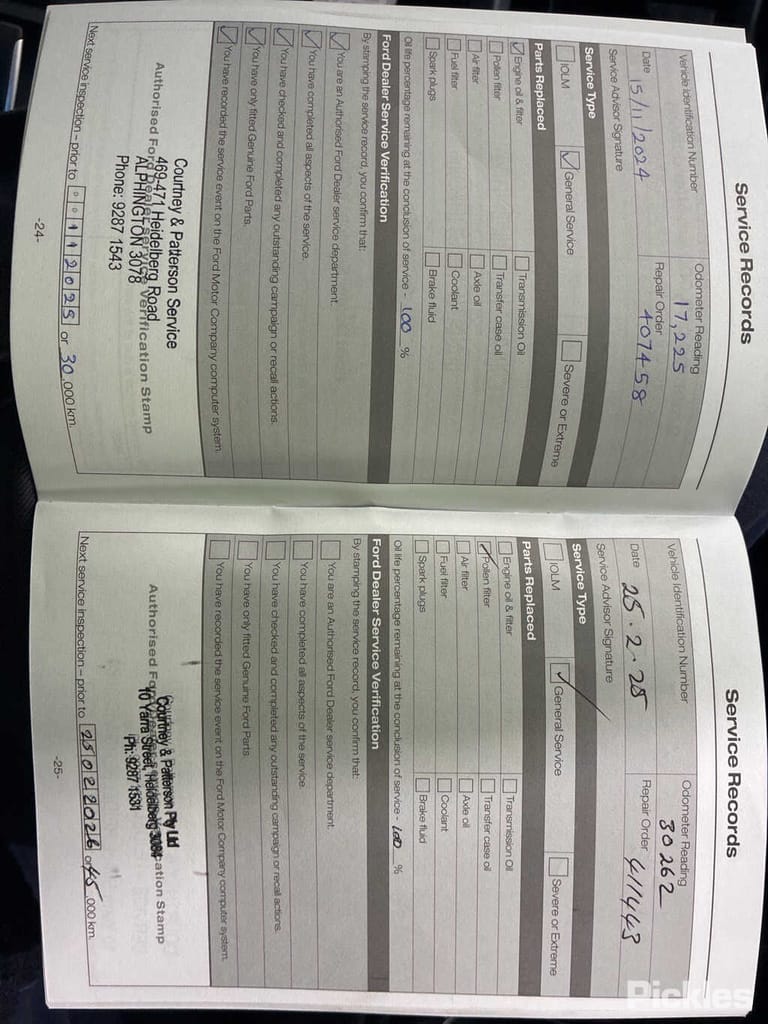 Service Records
Vehicle Identification Number
Odometer Reading
17,225
Date 15/11/2024
Repair Order
407458
Service Advisor Signature
Service Type
IOLM
General Service
Severe or Extreme
Parts Replaced
Engine oil & filter
Transmission Oil
Pollen filter
Transfer case oil
Air filter
Axle oil
Fuel filter
Coolant
Spark plugs
Brake fluid
Oil life percentage remaining at the conclusion of service - 100 %
Ford Dealer Service Verification
By stamping the service record, you confirm that:
You are an Authorised Ford Dealer service department.
You have completed all aspects of the service.
You have checked and completed any outstanding campaign or recall actions.
You have only fitted Genuine Ford Parts.
You have recorded the service event on the Ford Motor Company computer system.
Courtney & Patterson Service
469-471 Heidelberg Road
Authorised Ford Dealer Service Verification Stamp
ALPHINGTON 3078
Phone: 9287 1543
Next service inspection – prior to 00112025 or 30,000 km.
-24-
Service Records
Vehicle Identification Number
Odometer Reading
30262
Date 25.2.25
Repair Order 411443
Service Advisor Signature
Service Type
IOLM
General Service
Severe or Extreme
Parts Replaced
Engine oil & filter
Transmission Oil
Pollen filter
Transfer case oil
Air filter
Axle oil
Fuel filter
Coolant
Spark plugs
Brake fluid
Oil life percentage remaining at the conclusion of service - 100 %
Ford Dealer Service Verification
By stamping the service record, you confirm that:
You are an Authorised Ford Dealer service department.
You have completed all aspects of the service.
You have checked and completed any outstanding campaign or recall actions.
You have only fitted Genuine Ford Parts.
You have recorded the service event on the Ford Motor Company computer system.
Courtney & Patterson Pty Ltd
10 Yarra Street, Heidelberg 3084
Authorised Ford cation Stamp
Ph: 9287 1531
Next service inspection – prior to 25022026 or 45,000 km.
-25-
Pickles